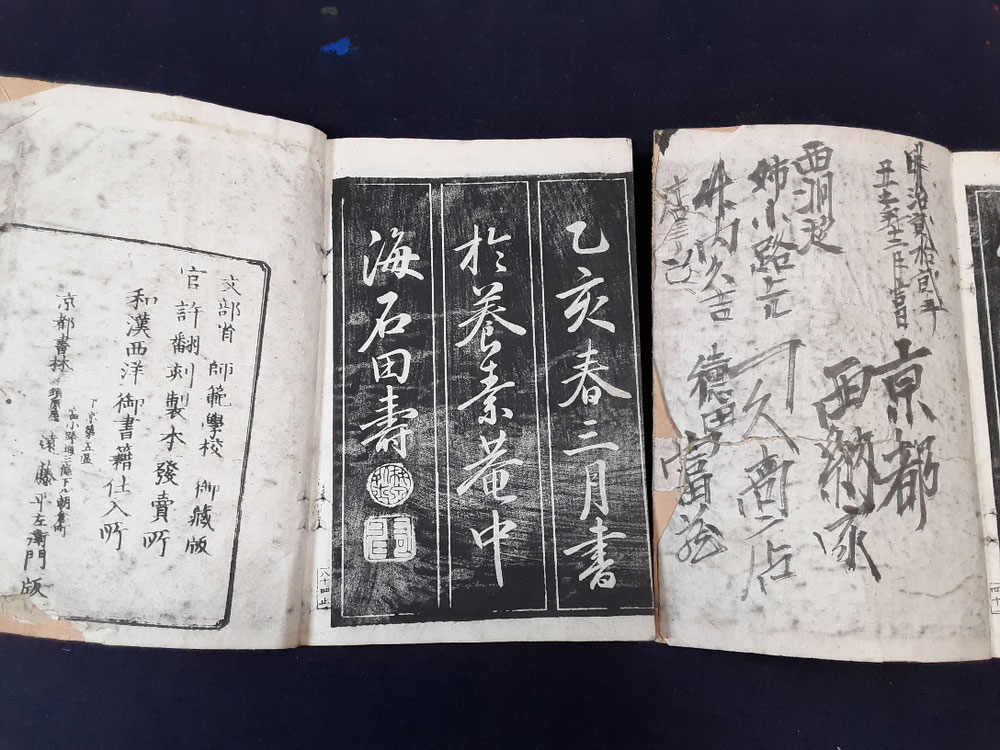 明治貳拾貳年
月吉日
京都
西納家
西洞院
姉小路
竹内久吉
久商店
德田富
乙亥春三月書
於養素菴中
海石田壽
八十四止
文部省 師範學校 御藏版
官許翻刻製本發賣所
和漢西洋御書籍仕入所
下京第五區
富小路通三條下ル朝倉町
京都書林 須原屋 遠藤平左衛門版